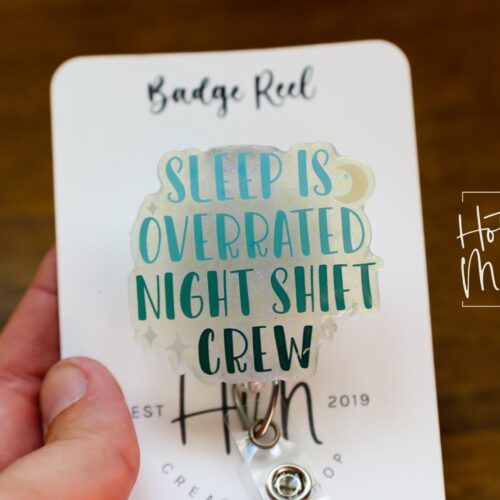 Badge Reel
SLEEP IS
OVERRATED
NIGHT SHIFT
CREW
EST
2019